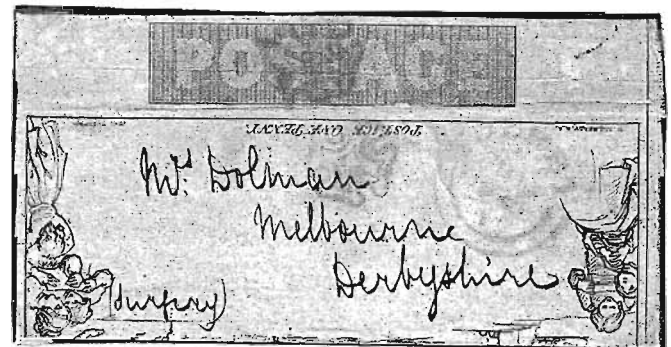 POSTAGE
POSTAGE ONE PENNY.
Mrs Dolman
Melbourne
Derbyshire
(Surgery)